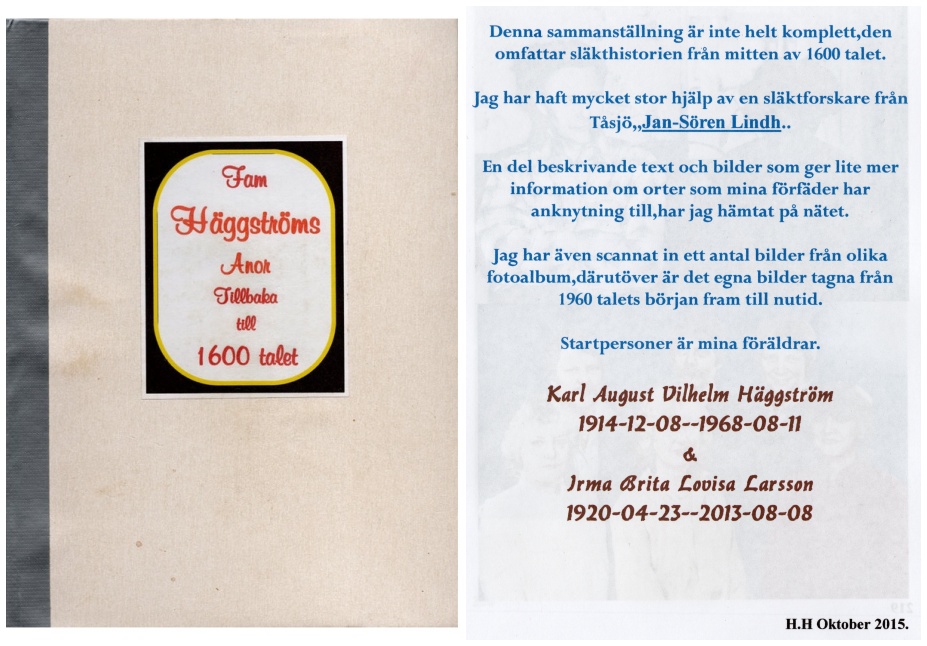 Fam
Häggströms
Anor
Tillbaka
till
1600 talet
Denna sammanställning är inte helt komplett,den
omfattar släkthistorien från mitten av 1600 talet.
Jag har haft mycket stor hjälp av en släktforskare från
Tåsjö,,Jan-Sören Lindh..
En del beskrivande text och bilder som ger lite mer
information om orter som mina förfäder har
anknytning till,har jag hämtat på nätet.
Jag har även scannat in ett antal bilder från olika
fotoalbum,därutöver är det egna bilder tagna från
1960 talets början fram till nutid.
Startpersoner är mina föräldrar.
Karl August Vilhelm Häggström
1914-12-08--1968-08-11
&
Irma Brita Lovisa Larsson
1920-04-23--2013-08-08
219
H.H Oktober 2015.